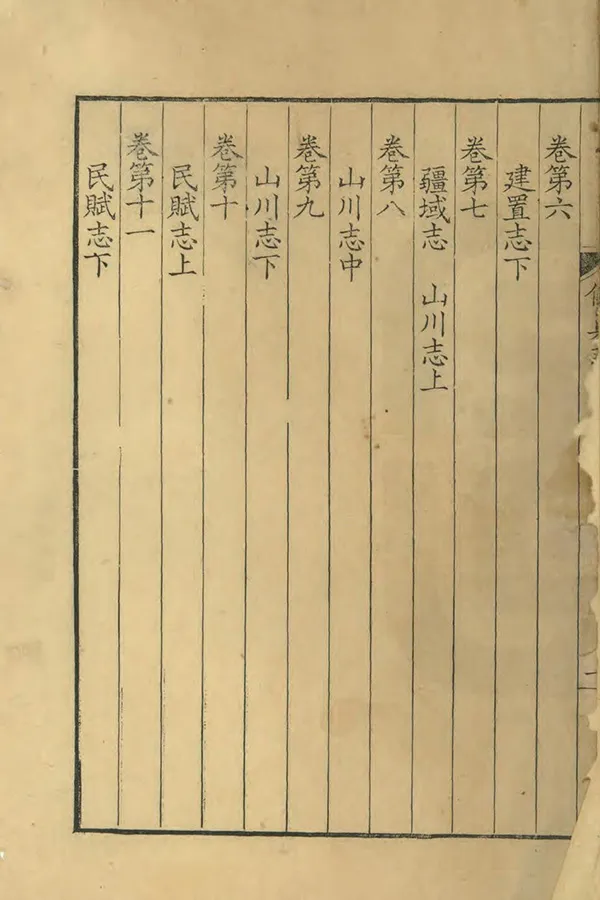 卷第六
建置志下
卷第七
疆域志 山川志上
卷第八
山川志中
卷第九
山川志下
卷第十
民賦志上
卷第十一
民賦志下